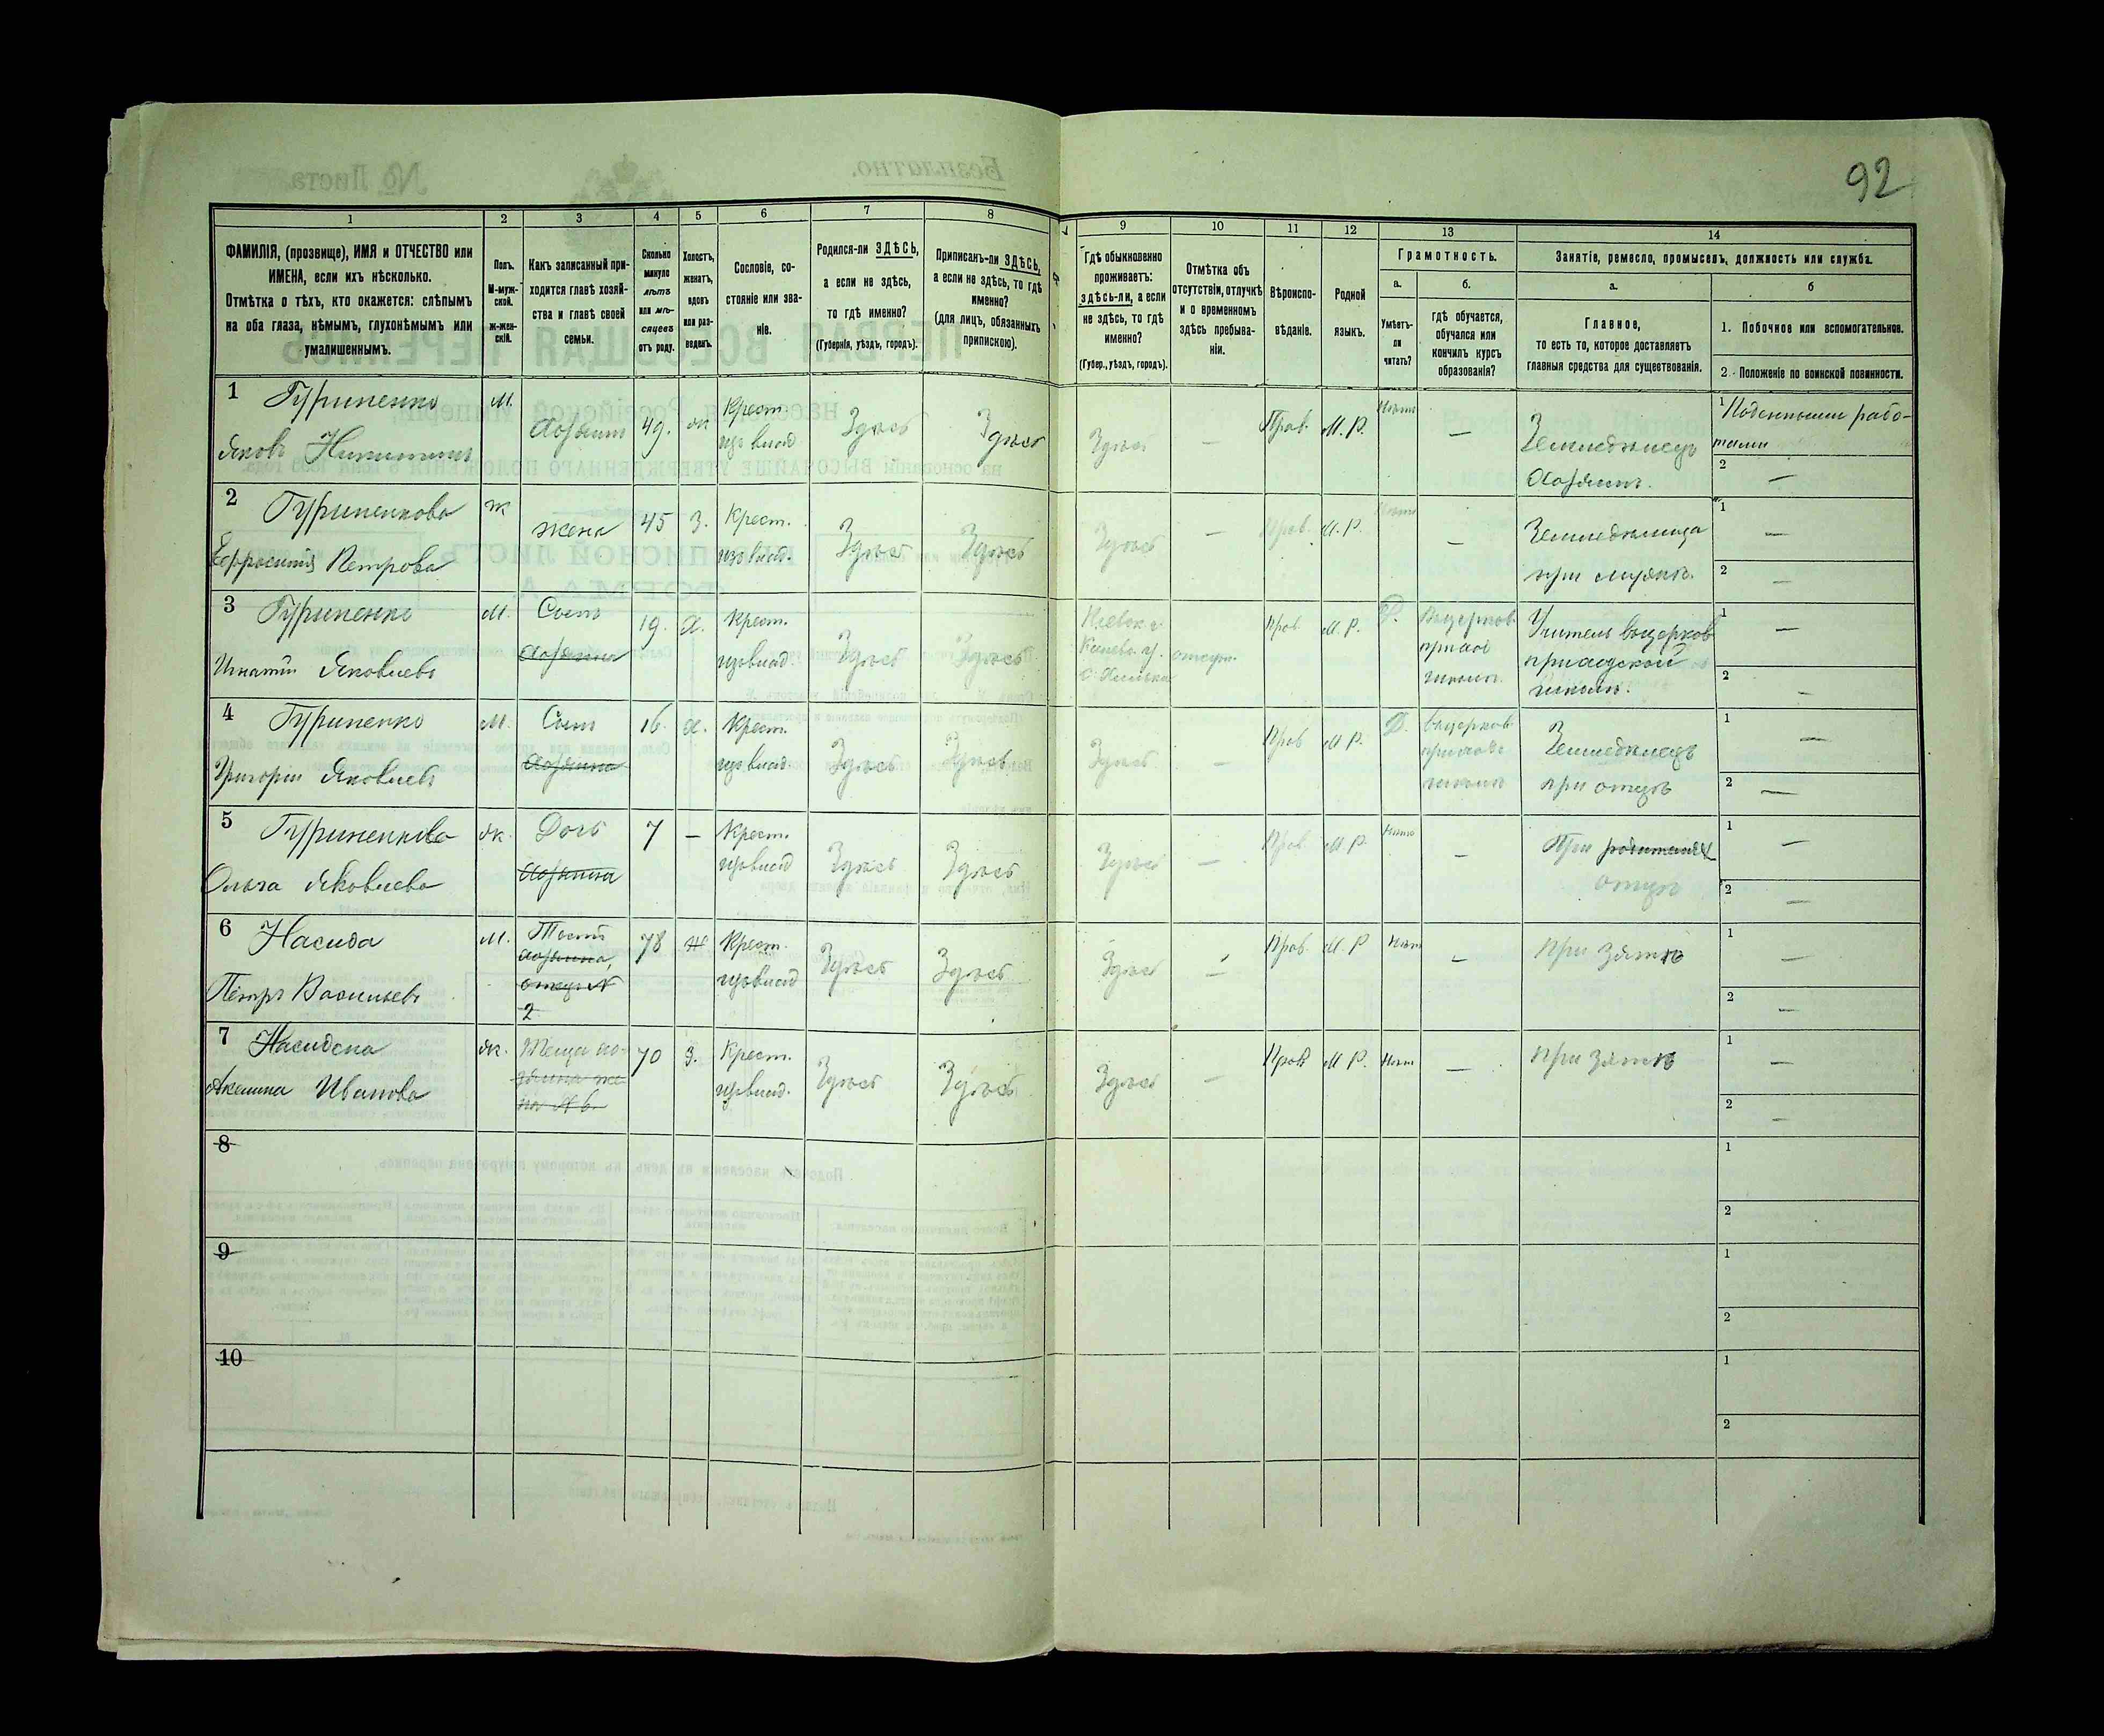 92
1 2 3 4 5 6 7 8 9 10 11 12 13 14
ФАМИЛІЯ, (прозвище), ИМЯ и ОТЧЕСТВО или
ИМЕНА, если ихъ нѣсколько.
Отмѣтка о тѣхъ, кто окажется: слѣпымъ
на оба глаза, нѣмымъ, глухонѣмымъ или
умалишеннымъ.
Полъ.
М-муж-
ской.
ж-жен-
скій.
Какъ записанный при-
ходится главѣ хозяй-
ства и главѣ своей
семьи.
Сколько
минуло
лѣтъ
или мѣ-
сяцевъ
отъ роду.
Холостъ,
женатъ,
вдовъ
или раз-
веденъ.
Сословіе, со-
стояніе или зва-
ніе.
Родился-ли ЗДѢСЬ,
а если не здѣсь,
то гдѣ именно?
(Губернія, уѣздъ, городъ).
Приписанъ-ли ЗДѢСЬ,
а если не здѣсь, то гдѣ
именно?
(для лицъ, обязанныхъ
припискою).
Гдѣ обыкновенно
проживаетъ:
здѣсь-ли, а если
не здѣсь, то гдѣ
именно?
(Губер., уѣздъ, городъ).
Отмѣтка объ
отсутствіи, отлучкѣ
и о временномъ
здѣсь пребыва-
ніи.
Вѣроиспо-
вѣданіе.
Родной
языкъ.
Грамотность.
а.
Умѣетъ-
ли
читать?
б.
гдѣ обучается,
обучался или
кончилъ курсъ
образованія?
Занятіе, ремесло, промыселъ, должность или служба.
а.
Главное,
то есть то, которое доставляетъ
главныя средства для существованія.
б
1. Побочное или вспомогательное.
2. Положеніе по воинской повинности.
1 Гуриненко М. Хозяинъ 49. ж Крест. Здѣсь Здѣсь Здѣсь — Прав. М. Р. Нѣтъ — Земледѣлецъ 1 Поденными рабо-
Яковъ Никитинъ изъ влад. Хозяинъ. тами
2 —
2 Гуриненкова ж жена 45 З. Крест. Здѣсь Здѣсь Здѣсь — Прав. М. Р. Нѣтъ — Земледѣлица 1 —
Ефросинія Петрова изъ влад. при мужѣ. 2 —
3 Гуриненко М. Сынъ 19. Х. Крест. Здѣсь Здѣсь Кіевск. г. отсут. Прав М. Р. Въ церков. Учитель въ церков 1 —
Игнатій Яковлевъ хозяина изъ влад. Каневс. у. приход приходской
школѣ. школѣ. 2 —
4 Гуриненко М. Сынъ 16. Х. Крест. Здѣсь Здѣсь Здѣсь — Прав М Р. въ церков Земледѣлецъ 1 —
Григорій Яковлевъ хозяина изъ влад. приходс при отцѣ 2 —
школѣ
5 Гуриненкова ж. Дочь 7 — Крест. Здѣсь Здѣсь Здѣсь — Прав М. Р. Нѣтъ — При родителях 1 —
Ольга Яковлева хозяина изъ влад отцѣ 2 —
6 Насида М. Тесть 78 ж Крест. Здѣсь Здѣсь Здѣсь — Прав. М. Р Нѣт — при зятѣ 1 —
Петръ Васильевъ хозяина, изъ влад 2 —
отецъ №
2
7 Насидена ж. Теща хо- 70 З. Крест. Здѣсь Здѣсь Здѣсь — Прав М Р. Нѣт — при зятѣ 1 —
Акелина Иванова зяина же- изъ влад. 2 —
на № 6.
8 1
2
9 1
2
10 1
2